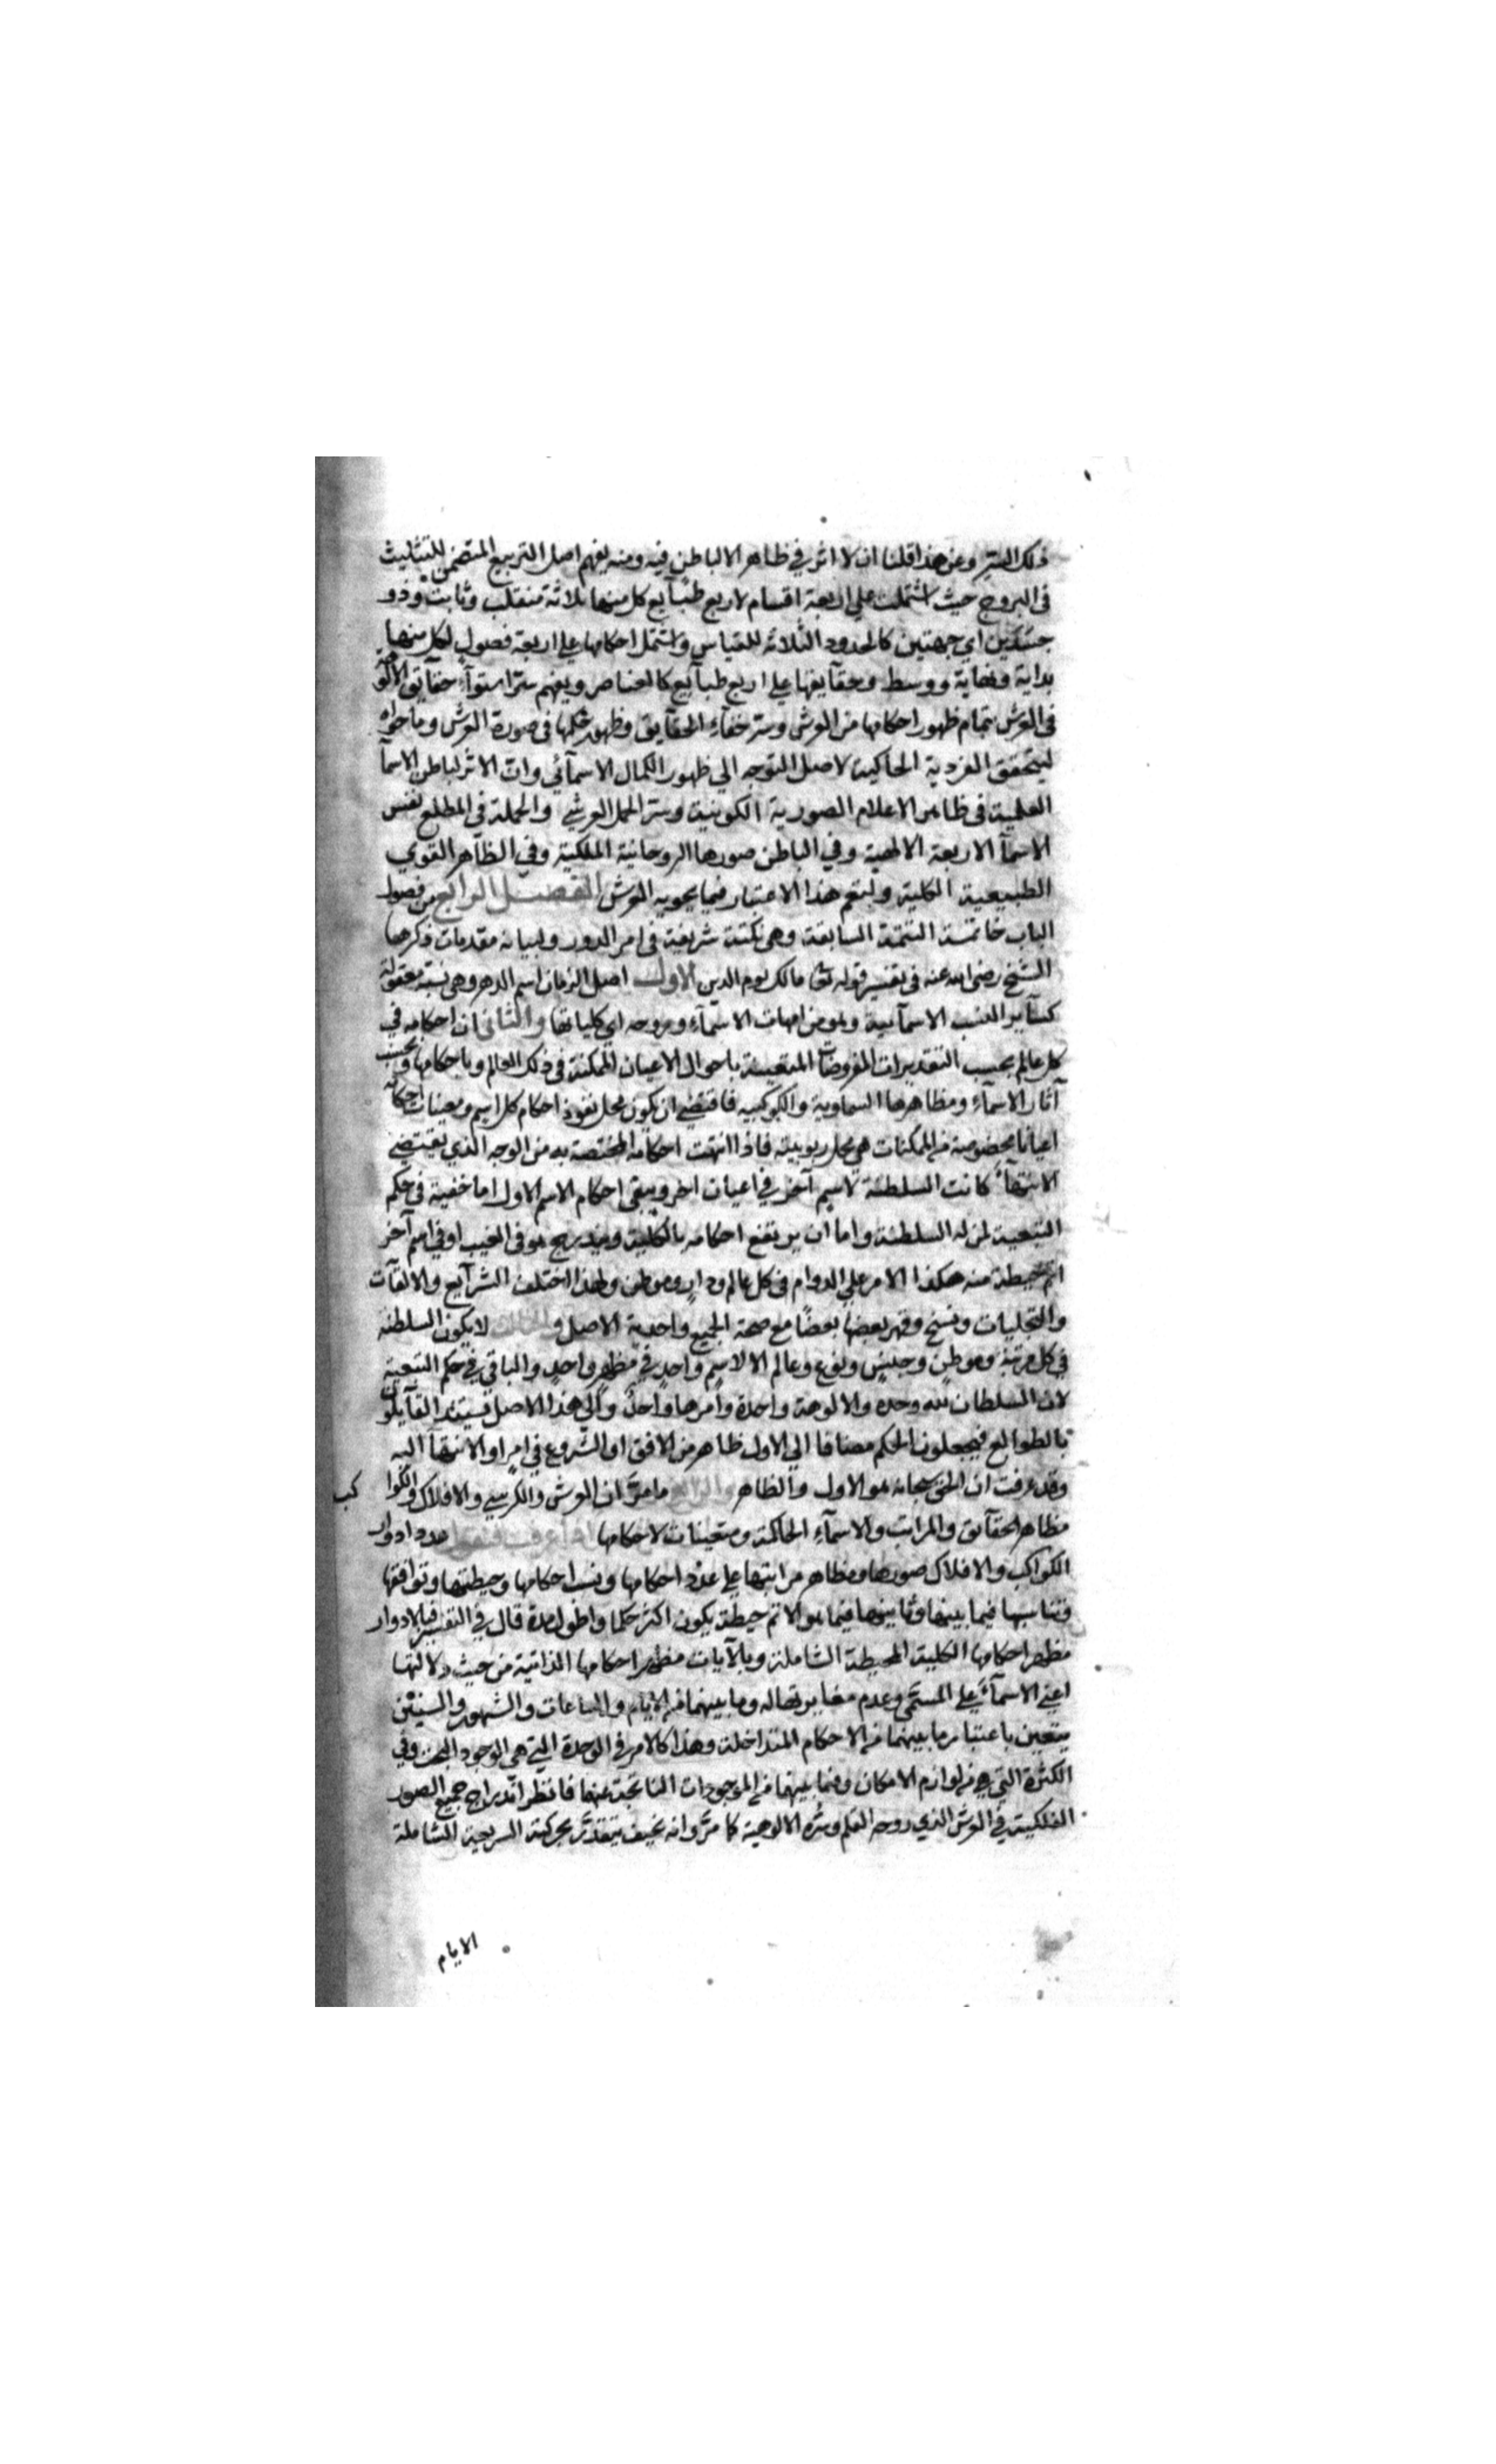 ذلك السر وعن هذا قلنا ان لا اثر في ظاهر الا لباطن فيه ومنه يفهم اصل التربيع المتضمن للتثليث
في البروج حيث اشتملت علي اربعة اقسام لاربع طبآيع كل منها ثلاثة منقلب وثابت وذو
جسدين اي جهتين كالحدود الثلاثة للقياس واشتمل احكامها علي اربعة فصول لكل منها
بداية ونهاية ووسط وحقآيقها علي اربع طبآيع كالعناصر ويفهم سر استوآء حقآيق الالوهة
في العرش بتمام ظهور احكامها من العرش وسر خفآء الحقآيق وظهور حكمها في صورة العرش وما حواه
ليتحقق الفردية الحاكية لاصل التوجه الي ظهور الكمال الاسمآئي وان الاثر لباطن الاسمآ
العلمية في ظاهر الاعلام الصورية الكونية وسر الحمل العرشي والحملة في المطلع نفس
الاسمآ الاربعة الالهية وفي الباطن صورها الروحانية الملكية وفي الظاهر القوي
الطبيعية الكلية وليعم هذا الاعتبار فيما يحويه العرش الفصل الرابع من فصول
الباب خاتمة التتمة السابقة وهي نكتة شريفة في امر الدور ولبيانه مقدمات ذكرها
الشيخ رضي الله عنه في تفسير قوله تعا مالك يوم الدين الاول اصل الزمان اسم الدهر وهي نسبة معقولة
كسآير النسب الاسمآئية وهو من امهات الاسمآء وروحه اي كلياتها والثاني ان احكامه في
كل عالم بحسب التقديرات المفروضات المتعينة باحوال الاعيان الممكنة في ذلك العالم وباحكامها وبحسب
آثار الاسمآء ومظاهرها السماوية والكوكبيه فاقتضي ان يكون محل نفوذ احكام كل اسم ومعينات احكامه
اعيانا مخصوصة من الممكنات هي محل ربوبيته فاذا انتهت احكامه المختصة به من الوجه الذي يقتضي
الانتهآء كانت السلطنة لاسم آخر في اعيان اخر ويبقي احكام الاسم الاول اما خفية في حكم
التبعية لمن له السلطنة واما ان يرتفع احكامه بالكلية ويندرج هو في الغيب او في اسم آخر
اتم حيطة منه هكذا الامر علي الدوام في كل عالم ودار وموطن ولهذا اختلف الشرآيع والالقآت
والتجليات ونسخ وقهر بعضها بعضا مع صحة الجميع واحدية الاصل والثالث لا يكون السلطنة
في كل مرتبة وموطن وجنس ونوع وعالم الا لاسم واحد في مظهر واحد والباقي في حكم التبعية
لان السلطان لله وحده والالوهة واحدة وامرها واحد والي هذا الاصل يستند القآيلون
بالطوالع فيجعلون الحكم مضافا الي الاول ظاهر من الافق او الشروع في امر او الانتهآ اليه
وقد عرفت ان الحق سبحانه هو الاول والظاهر والرابع ما مر ان العرش والكرسي والافلاك والكواكب
مظاهر الحقآيق والمراتب والاسمآء الحاكمة ومتعينات لاحكامها اذا عرفت فنقول عدد ادوار
الكواكب والافلاك صورها ومظاهر مراتبها علي عدد احكامها ونسب احكامها وحيطتها وتوافقها
وتناسبها فيما بينها وتباينها فيما هو الاتم حيطة يكون اكثر حكما واطول مدة قال في التفسير فبالادوار
مظهر احكامها الكلية المحيطة الشاملة وبالآيات مظهر احكامها الذاتية من حيث دلالتها
اعني الاسمآء علي المسمي وعدم مغايرتها له وما بينهما من الايام والساعات والشهور والسنين
يتعين باعتبار ما بينهما من الاحكام المتداخلة وهذا كالامر في الوحدة التي هي الوجود البحت وفي
الكثرة التي هي من لوازم الامكان وفيما بينهما من الموجودات الناتجة عنهما فانظر اندراج جميع الصور
الفلكية في العرش الذي روحه القلم وسره الالوهية كما مر وانه كيف يتقدر بحركته السريعة الشاملة
الايام